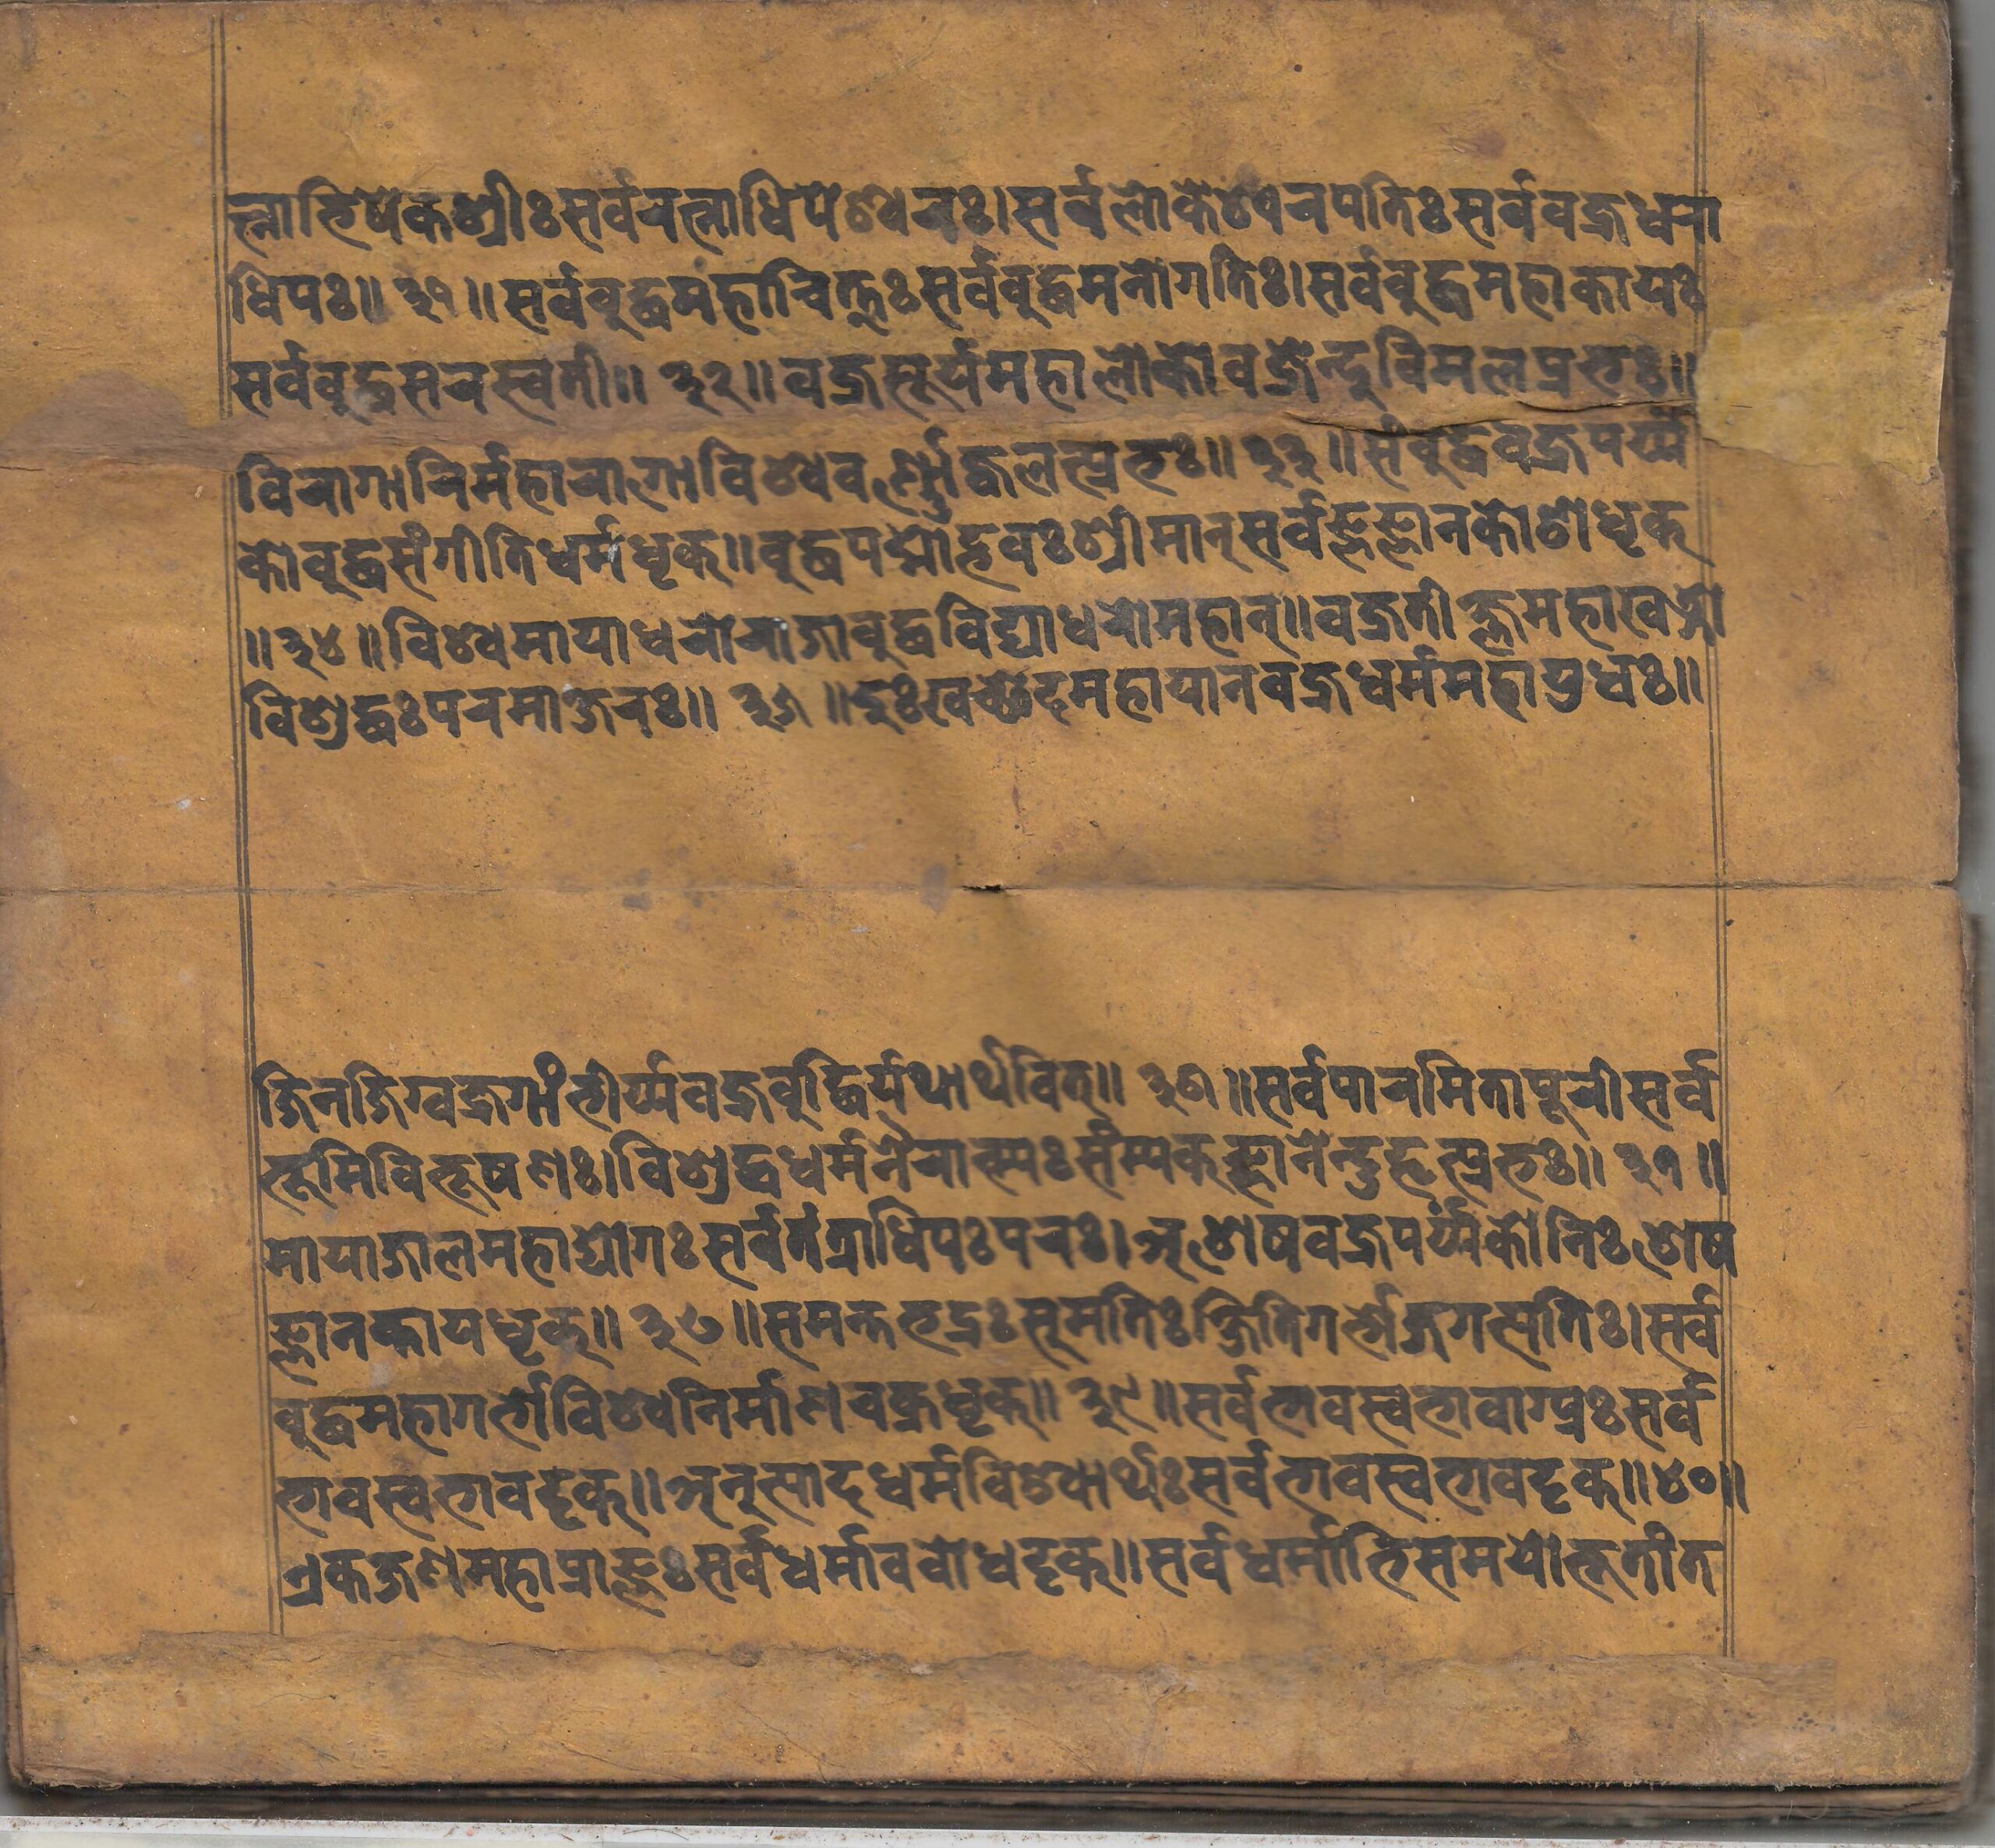 त्नाभिषेकश्रीः सर्वरत्नाधिपेश्वरः। सर्वलोकेश्वरपतिः सर्ववज्रधरा
धिपः॥ ३१ ॥ सर्वबुद्धमहाचित्तः सर्वबुद्धमनोगतिः। सर्वबुद्धमहाकायः
सर्वबुद्धसरस्वती॥ ३२ ॥ वज्रसूर्यमहालोको वज्रेन्दुविमलप्रभः॥
विरागानिर्महारागो विश्वेवर्ण्णुज्वलत्प्रभः॥ ३३ ॥ संबुद्धवज्रपर्य्यं
को बुद्धसंगीतिधर्मधृक्॥ बुद्धपद्मोद्भवः श्रीमान् सर्वज्ञज्ञानकोशधृक्
॥ ३४ ॥ विश्वेमायाधरो राजा बुद्धविद्याधरो महान्॥ वज्रतीक्ष्णमहाखड्गो
विशुद्धः परमाक्षरः॥ ३५ ॥ दुःखच्छेदमहायानवज्रधर्ममहायुधः॥
जिनजिग्वज्रगांभीर्य्यवज्रबुद्धिर्यथार्थवित्॥ ३६ ॥ सर्वपारमितापूरी सर्व
भूमिविभूषणः। विशुद्धधर्मनैरात्म्यः संम्यक्ज्ञानेन्दुहृत्प्रभः॥ ३७ ॥
मायाजालमहाद्योगः सर्वतंत्राधिपः परः। अशेषवज्रपर्य्यंको निःशेष
ज्ञानकायधृक्॥ ३८ ॥ समन्तभद्रः सूमतिः क्षितिगर्भो जगत्पतिः। सर्व
बुद्धमहागर्भो विश्वेनिर्माणचक्रधृक्॥ ३९ ॥ सर्वभावस्वभावाग्य्रः सर्व
भावस्वभावदृक्॥ अनुत्पादधर्मविश्वार्थः सर्वभावस्वभावदृक्॥ ४० ॥
एकक्षणमहाप्राज्ञः सर्वधर्मावबोधदृक्॥ सर्वधर्माभिसमयो भूतांत